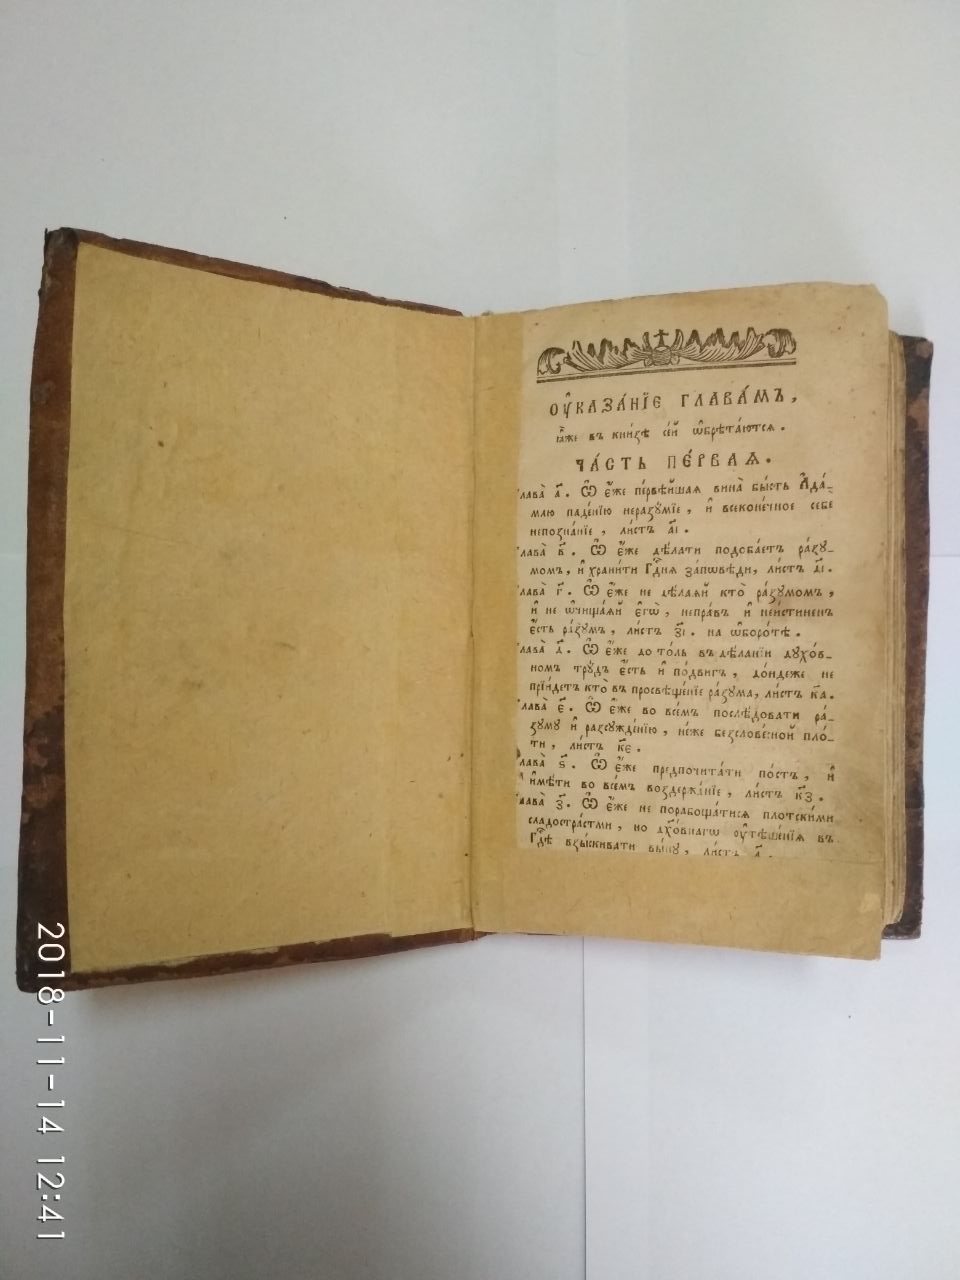 Оу҆каза́нїе глава́мъ,
ꙗ҆̀же въ кни́зѣ се́й ѡ҆брѣта́ютсѧ.
Ча́сть пе́рваѧ.
лава̀ а҃. Ѿ е҆́же пе́рвѣйшаѧ вина̀ бы́сть А҆да́-
маю паде́нїю неразꙋмїе, и҆ всеконе́чное себе
непозна́нїе, ли́стъ а҃і.
лава̀ в҃. Ѿ е҆́же дѣ́лати подоба́етъ ра́зꙋ-
момъ, и҆ храни́ти Гдⷭ҇нѧ за́пѡвѣди, ли́стъ д҃і.
лава̀ г҃. Ѿ е҆́же не дѣ́лаѧй кто̀ ра́зꙋмомъ,
и҆ не ѡ҆чища́ѧй є҆го̀, непра́въ и҆ неи́стиненъ
е҆́сть ра́зꙋмъ, ли́стъ з҃і. на ѡ҆боро́тѣ.
лава̀ д҃. Ѿ е҆́же до то́ль въ дѣ́ланїи дꙋхо́в-
номъ трꙋ́дъ е҆́сть и҆ по́двигъ, до́ндеже не
прїи́детъ кто̀ въ просвѣще́нїе ра́зꙋма, ли́стъ к҃а.
лава̀ е҃. Ѿ е҆́же во все́мъ послѣ́довати ра́-
зꙋмꙋ и҆ разсꙋжде́нїю, не́же безслове́сной пло́-
ти, ли́стъ к҃е.
лава̀ ѕ҃. Ѿ е҆́же предпочита́ти по́стъ, и҆
и҆мѣ́ти во все́мъ воздержа́нїе, ли́стъ к҃з.
лава̀ з҃. Ѿ е҆́же не порабоща́тисѧ плотски́ми
сладостра́стми, но дх҃о́внагѡ оу҆тѣше́нїѧ въ
Гдⷭ҇ѣ взы́скивати вы́нꙋ, ли́стъ л҃.
2018-11-14 12:41